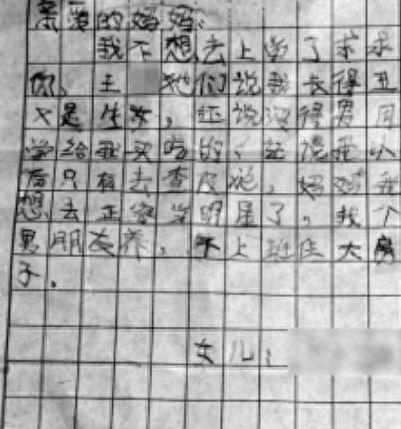 亲爱的妈妈：
我不想去上学了求求
你，王 她们说我长得丑
又是生女，还说没得男同
学给我买吃的，还说我以
后只有去查皮炮，妈妈我
想去正容当明星了，找个
男朋友养，不上班住大房
子。
女儿：